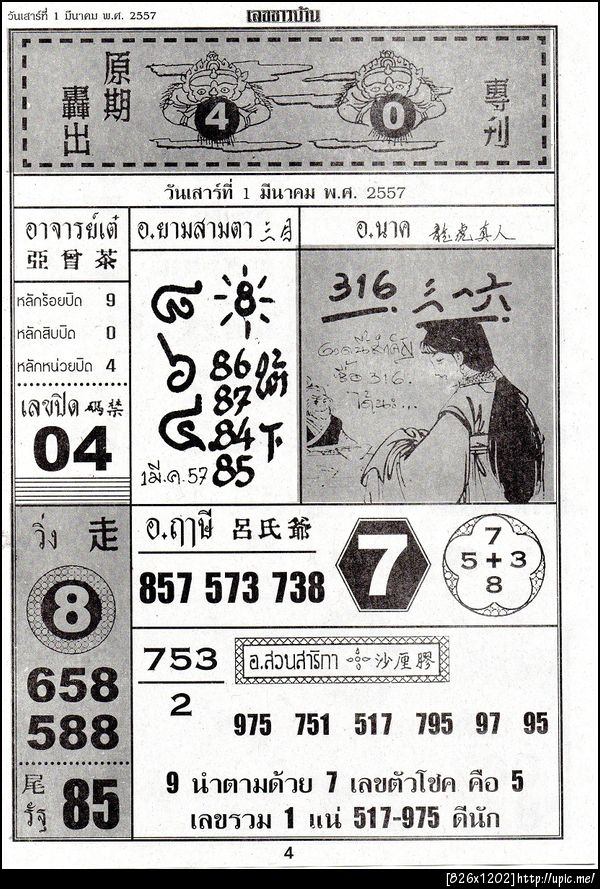 วันเสาร์ที่ 1 มีนาคม พ.ศ. 2557
เลขชาวบ้าน
原期
轟出
4
0
專刊
วันเสาร์ที่ 1 มีนาคม พ.ศ. 2557
อาจารย์เต๋
亞曾茶
หลักร้อยปิด 9
หลักสิบปิด 0
หลักหน่วยปิด 4
เลขปิด 碼禁
04
อ.ยามสามตา 三目
๘ 8
๖ 86 บน
87 ใต้
๔ 84 下
85
1 มี.ค.57
อ.นาค 龍虎真人
316 三一六
316.
วิ่ง 走
8
658
588
尾
รัฐ 85
อ.ฤาษี 呂氏爺
857 573 738
7
7
5 + 3
8
753
2
อ.สวนสาริกา 沙厘膠
975 751 517 795 97 95
9 นำตามด้วย 7 เลขตัวโชค คือ 5
เลขรวม 1 แน่ 517-975 ดีนัก
4
[826x1202]http://upic.me/